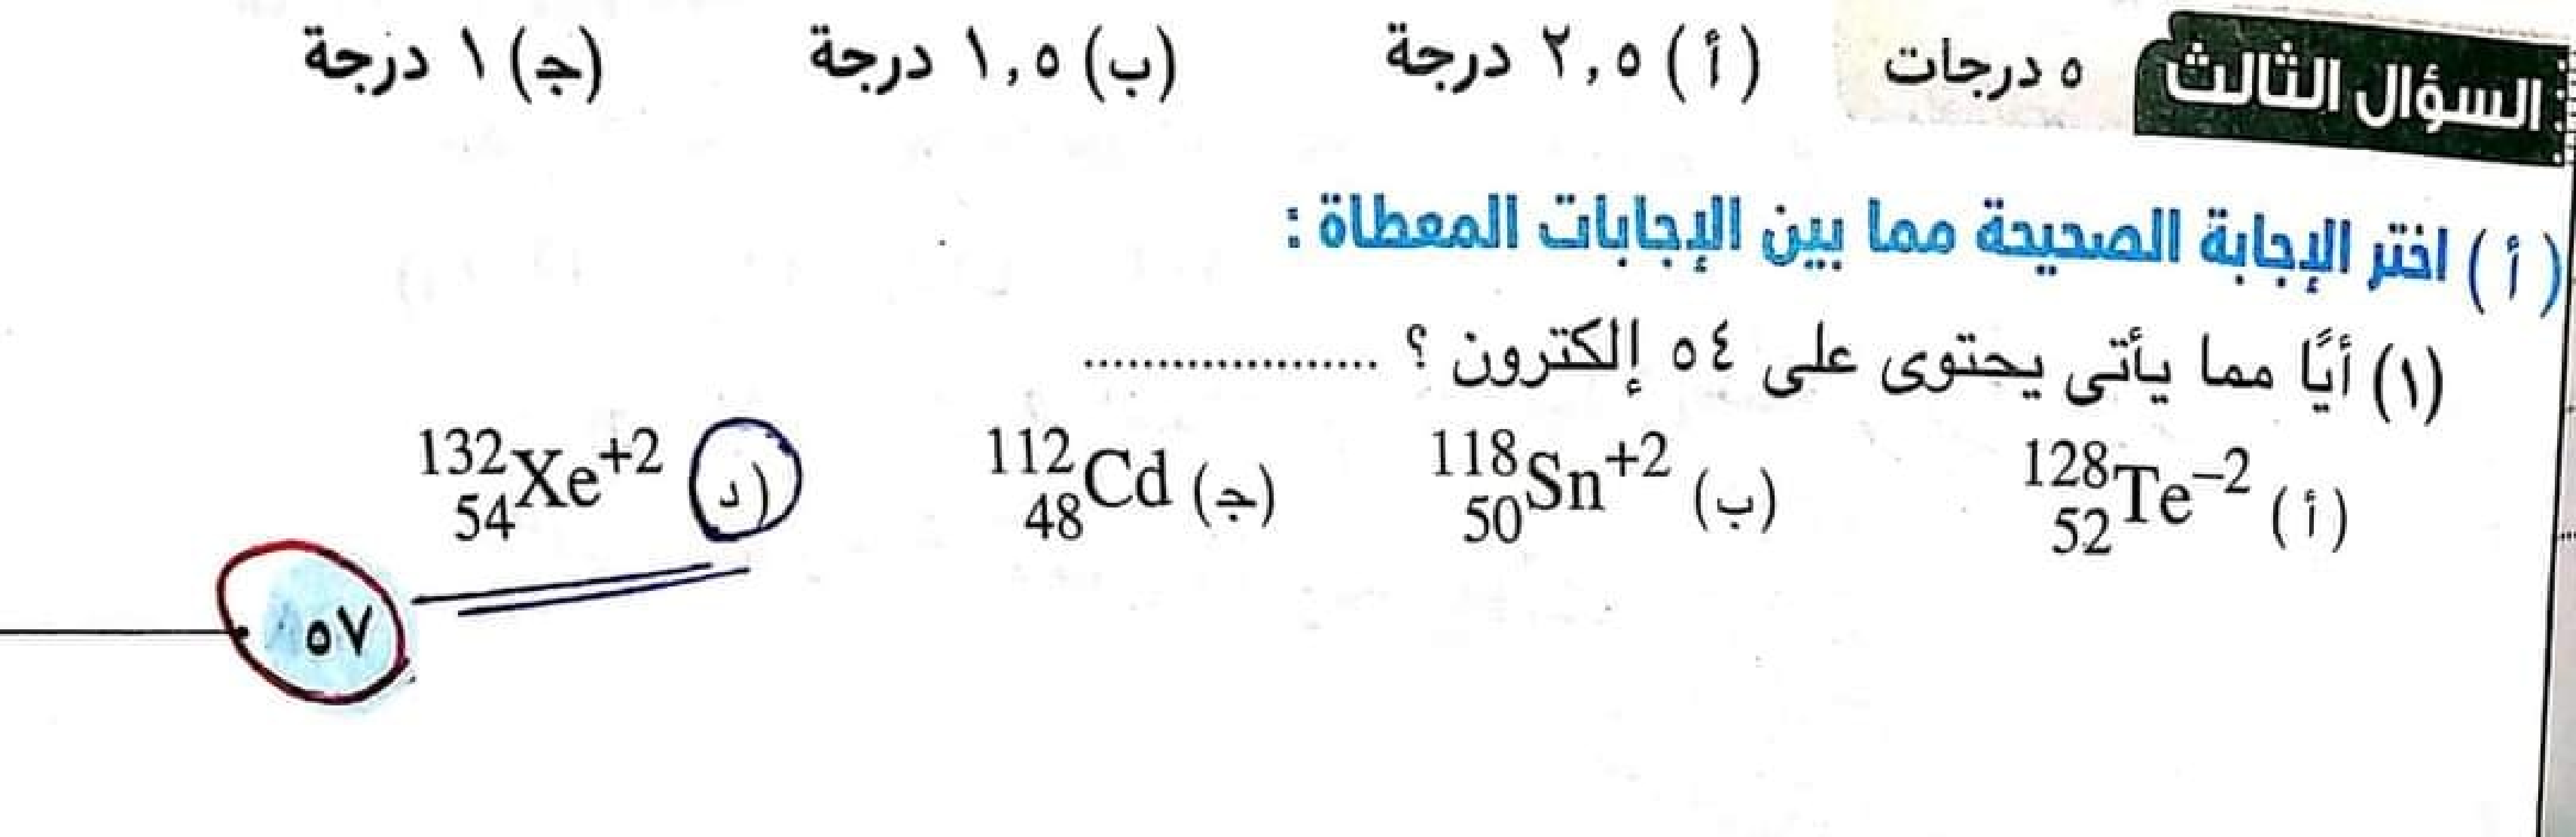 السؤال الثالث ٥ درجات (أ) ٢,٥ درجة (ب) ١,٥ درجة (جـ) ١ درجة
(أ) اختر الإجابة الصحيحة مما بين الإجابات المعطاة :
(١) أيًا مما يأتى يحتوى على ٥٤ إلكترون ؟ ....................
(أ) ¹²⁸₅₂Te⁻² (ب) ¹¹⁸₅₀Sn⁺² (جـ) ¹¹²₄₈Cd (د) ¹³²₅₄Xe⁺²
٥٧